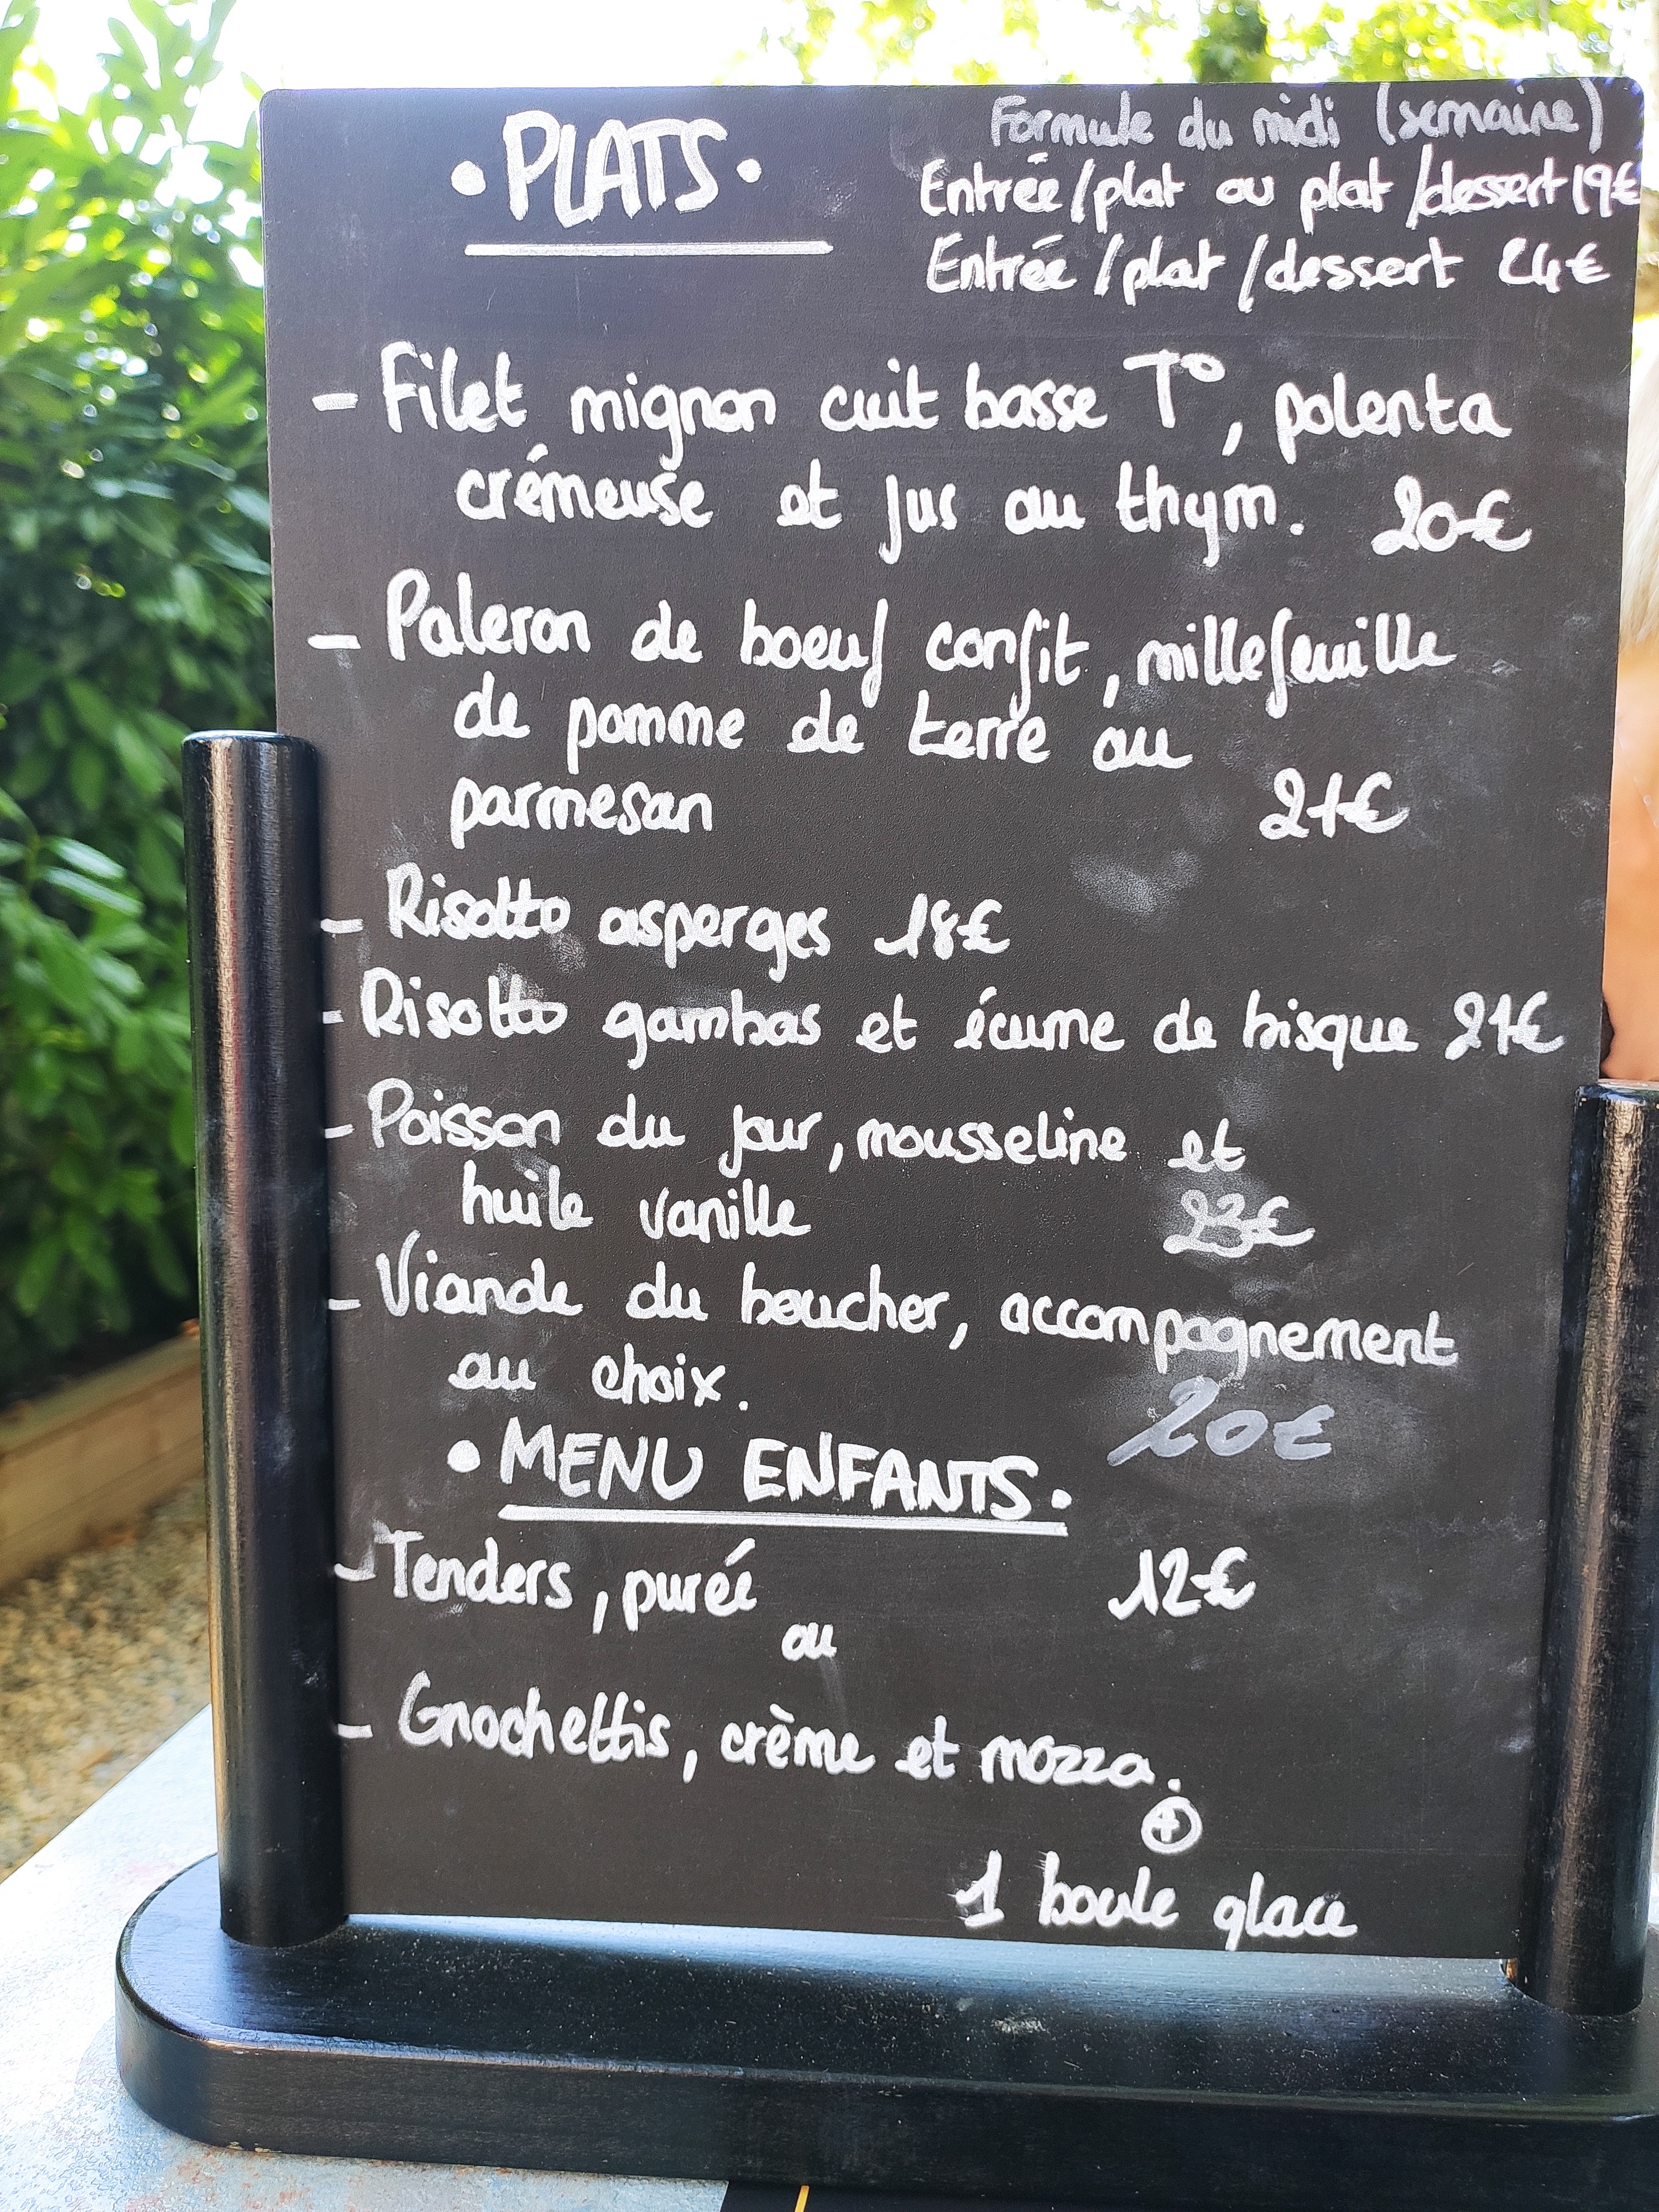 • PLATS •
Formule du midi (semaine)
Entrée/plat ou plat/dessert 19€
Entrée/plat/dessert 24€
- Filet mignon cuit basse T°, polenta
crémeuse et jus au thym. 20€
- Paleron de boeuf confit, millefeuille
de pomme de terre au
parmesan 21€
- Risotto asperges 18€
- Risotto gambas et écume de bisque 21€
- Poisson du jour, mousseline et
huile vanille 23€
- Viande du boucher, accompagnement
au choix. 20€
• MENU ENFANTS •
- Tenders, purée 12€
ou
- Gnochettis, crème et mozza.
+
1 boule glace